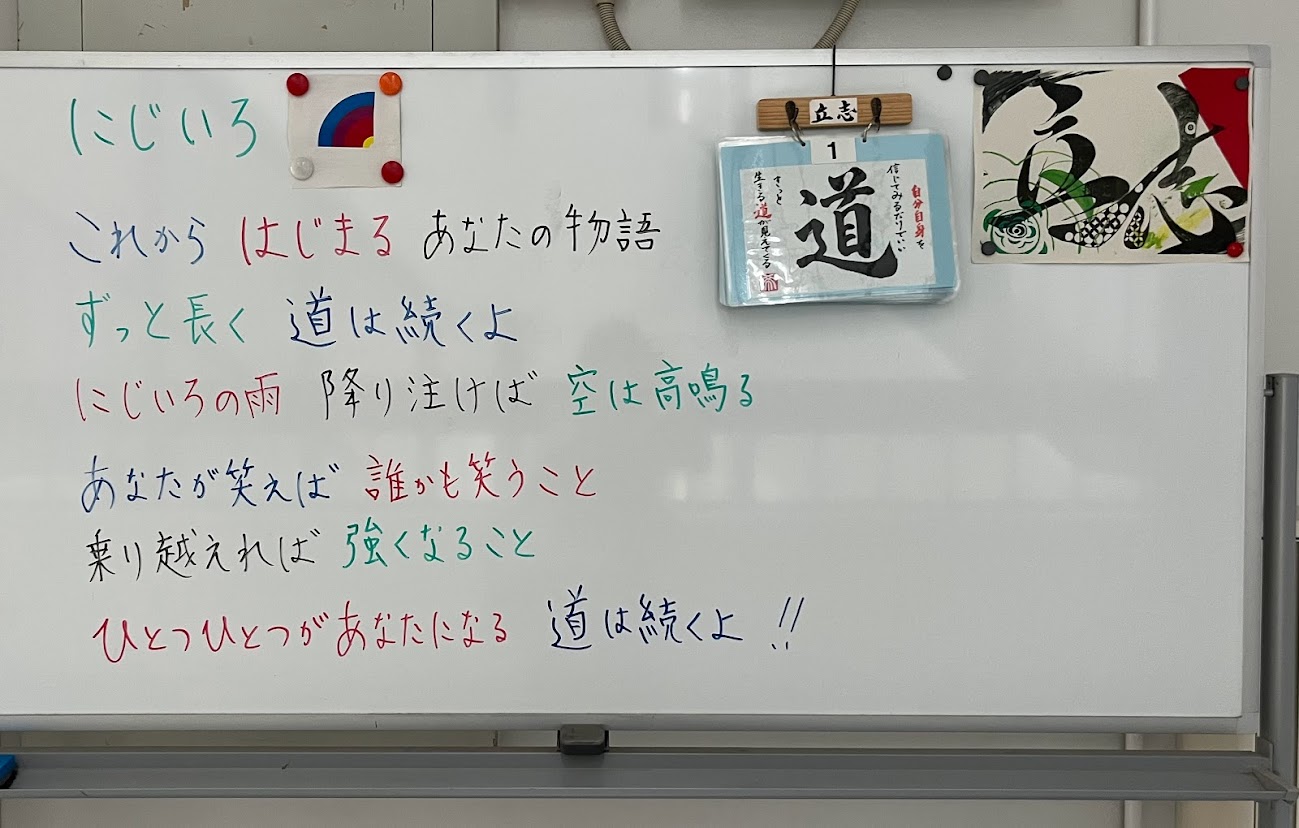 にじいろ
これから はじまる あなたの物語
ずっと長く 道は続くよ
にじいろの雨 降り注げば 空は高鳴る
あなたが笑えば 誰かも笑うこと
乗り越えれば 強くなること
ひとつひとつがあなたになる 道は続くよ!!
立志
1
自分自身を
信じてみるだけでいい
道
きっと
生きる道が見えてくる